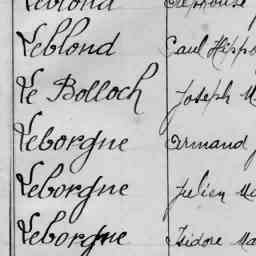 Leblond
Leblond Paul Hippo
Le Bolloch Joseph M
Leborgne Armand J
Leborgne Julien Ma
Leborgne Isidore Ma